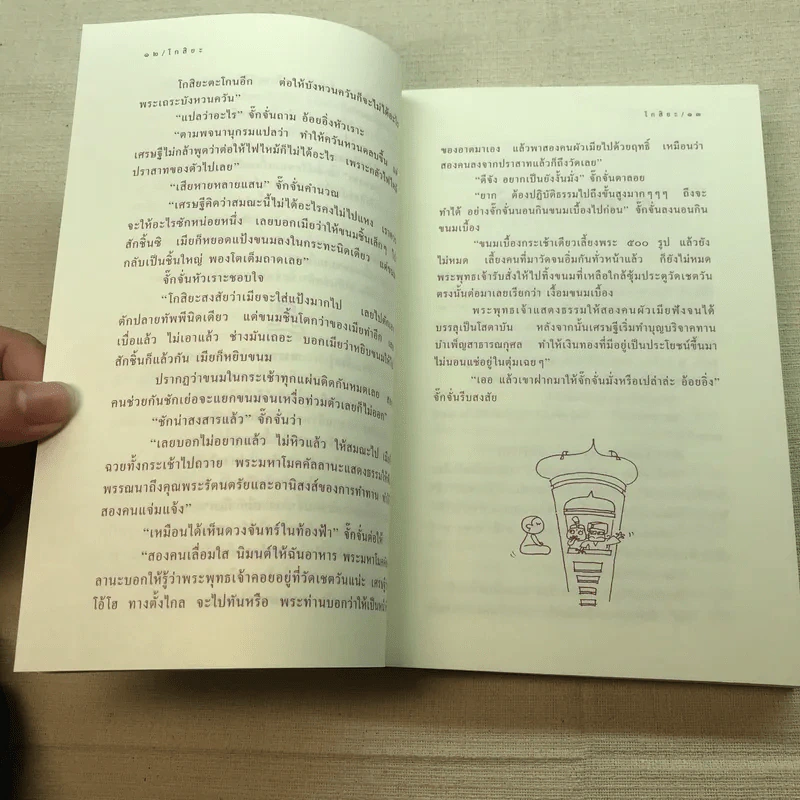 ๑๒/โกสิยะ
โกสิยะตะโกนอีก ต่อให้บังหวนควันก็จะไม่ได้อะไร
พระเถระบังหวนควัน”
“แปลว่าอะไร” จั๊กจั่นถาม อ้อยอิ่งหัวเราะ
“ตามพจนานุกรมแปลว่า ทำให้ควันหวนตลบขึ้น
เศรษฐีไม่กล้าพูดว่าต่อให้ไฟไหม้ก็ไม่ได้อะไร เพราะกลัวไฟไหม้
ปราสาทของตัวไปเลย”
“เสียหายหลายแสน” จั๊กจั่นคำนวณ
“เศรษฐีคิดว่าสมณะนี้ไม่ได้อะไรคงไม่ไปแหง
จะให้อะไรซักหน่อยหนึ่ง เลยบอกเมียว่าให้ขนมชิ้นเล็กๆ
สักชิ้นซิ เมียก็หยอดแป้งขนมลงในกระทะนิดเดียว
กลับเป็นชิ้นใหญ่ พองโตเต็มถาดเลย”
จั๊กจั่นหัวเราะชอบใจ
“โกสิยะสงสัยว่าเมียจะใส่แป้งมากไป เลยไปตัก
ตักปลายทัพพีนิดเดียว แต่ขนมชิ้นโตกว่าของเมียทำอีก
เบื่อแล้ว ไม่เอาแล้ว ช่างมันเถอะ บอกเมียว่าหยิบขนมให้
สักชิ้นก็แล้วกัน เมียก็หยิบขนม
ปรากฏว่าขนมในกระเช้าทุกแผ่นติดกันหมดเลย
คนช่วยกันชักเย่อจะแยกขนมจนเหงื่อท่วมตัวเลยก็ไม่ออก”
“ชักน่าสงสารแล้ว” จั๊กจั่นว่า
“เลยบอกไม่อยากแล้ว ไม่หิวแล้ว ให้สมณะไป
ฉวยทั้งกระเช้าไปถวาย พระมหาโมคคัลลานะแสดงธรรมให้
พรรณนาถึงคุณพระรัตนตรัยและอานิสงส์ของการทำทาน
สองคนแจ่มแจ้ง”
“เหมือนได้เห็นดวงจันทร์ในท้องฟ้า” จั๊กจั่นต่อให้
“สองคนเลื่อมใส นิมนต์ให้ฉันอาหาร พระมหาโมคคัล
ลานะบอกให้รู้ว่าพระพุทธเจ้าคอยอยู่ที่วัดเชตวันแน่ะ
โอ้โฮ ทางตั้งไกล จะไปทันหรือ พระท่านบอกว่าให้เป็น
โกสิยะ/๑๓
ของอาตมาเอง แล้วพาสองคนผัวเมียไปด้วยฤทธิ์ เหมือนว่า
สองคนลงจากปราสาทแล้วก็ถึงวัดเลย”
“ดีจัง อยากเป็นยังงั้นมั่ง” จั๊กจั่นตาลอย
“ยาก ต้องปฏิบัติธรรมไปถึงขั้นสูงมากๆๆๆ ถึงจะ
ทำได้ อย่างจั๊กจั่นนอนกินขนมเบื้องไปก่อน” จั๊กจั่นลงนอนกิน
ขนมเบื้อง
“ขนมเบื้องกระเช้าเดียวเลี้ยงพระ ๕๐๐ รูป แล้วยัง
ไม่หมด เลี้ยงคนที่มาวัดจนอิ่มกันทั่วหน้าแล้ว ก็ยังไม่หมด
พระพุทธเจ้ารับสั่งให้ไปทิ้งขนมที่เหลือใกล้ซุ้มประตูวัดเชตวัน
ตรงนั้นต่อมาเลยเรียกว่า เงื้อมขนมเบื้อง
พระพุทธเจ้าแสดงธรรมให้สองคนผัวเมียฟังจนได้
บรรลุเป็นโสดาบัน หลังจากนั้นเศรษฐีเริ่มทำบุญบริจาคทาน
บำเพ็ญสาธารณกุศล ทำให้เงินทองที่มีอยู่เป็นประโยชน์ขึ้นมา
ไม่นอนแช่อยู่ในตุ่มเฉยๆ”
“เออ แล้วเขาฝากมาให้จั๊กจั่นมั่งหรือเปล่าล่ะ อ้อยอิ่ง”
จั๊กจั่นรีบสงสัย